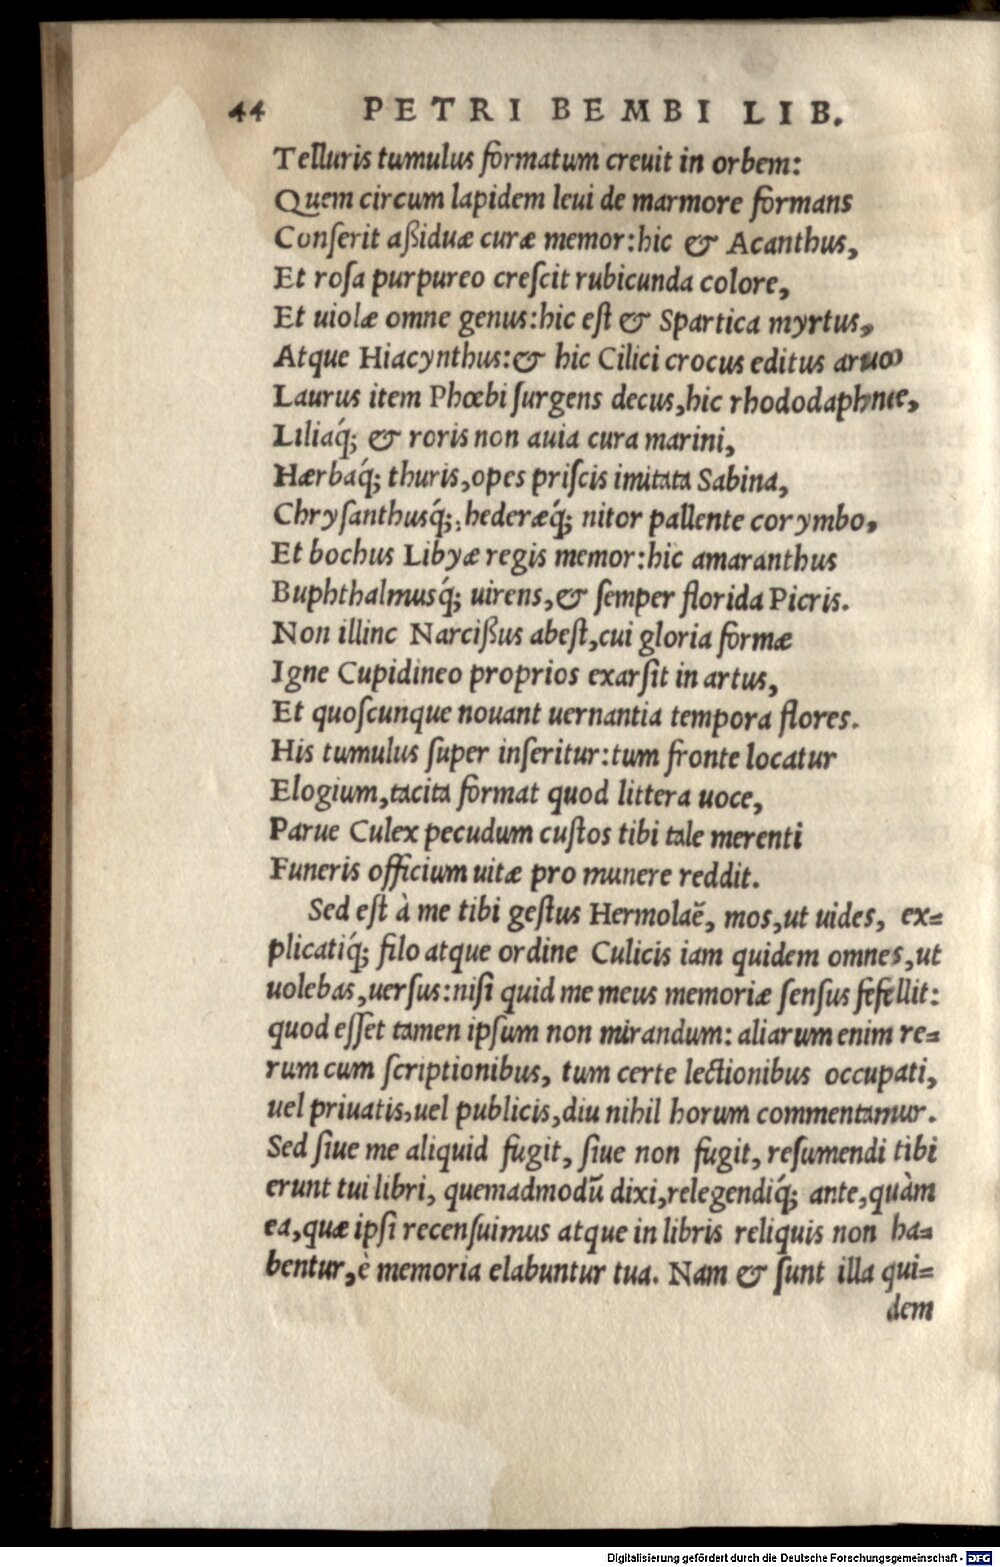 44 PETRI BEMBI LIB.
Telluris tumulus formatum creuit in orbem:
Quem circum lapidem leui de marmore formans
Conſerit aßiduæ curæ memor:hic & Acanthus,
Et roſa purpureo creſcit rubicunda colore,
Et uiolæ omne genus:hic eſt & Spartica myrtus,
Atque Hiacynthus:& hic Cilici crocus editus aruo
Laurus item Phœbi ſurgens decus,hic rhododaphnie,
Liliaq́; & roris non auia cura marini,
Hærbaq́; thuris,opes priſcis imitata Sabina,
Chryſanthusq́;,hederæq́; nitor pallente corymbo,
Et bochus Libyæ regis memor:hic amaranthus
Buphthalmusq́; uirens,& ſemper florida Picris.
Non illinc Narcißus abeſt,cui gloria formæ
Igne Cupidineo proprios exarſit in artus,
Et quoſcunque nouant uernantia tempora flores.
His tumulus ſuper inſeritur:tum fronte locatur
Elogium,tacita format quod littera uoce,
Parue Culex pecudum cuſtos tibi tale merenti
Funeris officium uitæ pro munere reddit.
Sed eſt à me tibi geſtus Hermolaë, mos,ut uides, ex=
plicatiq́; filo atque ordine Culicis iam quidem omnes,ut
uolebas,uerſus:niſi quid me meus memoriæ ſenſus fefellit:
quod eſſet tamen ipſum non mirandum: aliarum enim re=
rum cum ſcriptionibus, tum certe lectionibus occupati,
uel priuatis,uel publicis,diu nihil horum commentamur.
Sed ſiue me aliquid fugit, ſiue non fugit, reſumendi tibi
erunt tui libri, quemadmodū dixi,relegendiq́; ante,quàm
ea,quæ ipſi recenſuimus atque in libris reliquis non ha=
bentur,è memoria elabuntur tua. Nam & ſunt illa qui=
dem
Digitalisierung gefördert durch die Deutsche Forschungsgemeinschaft - DFG